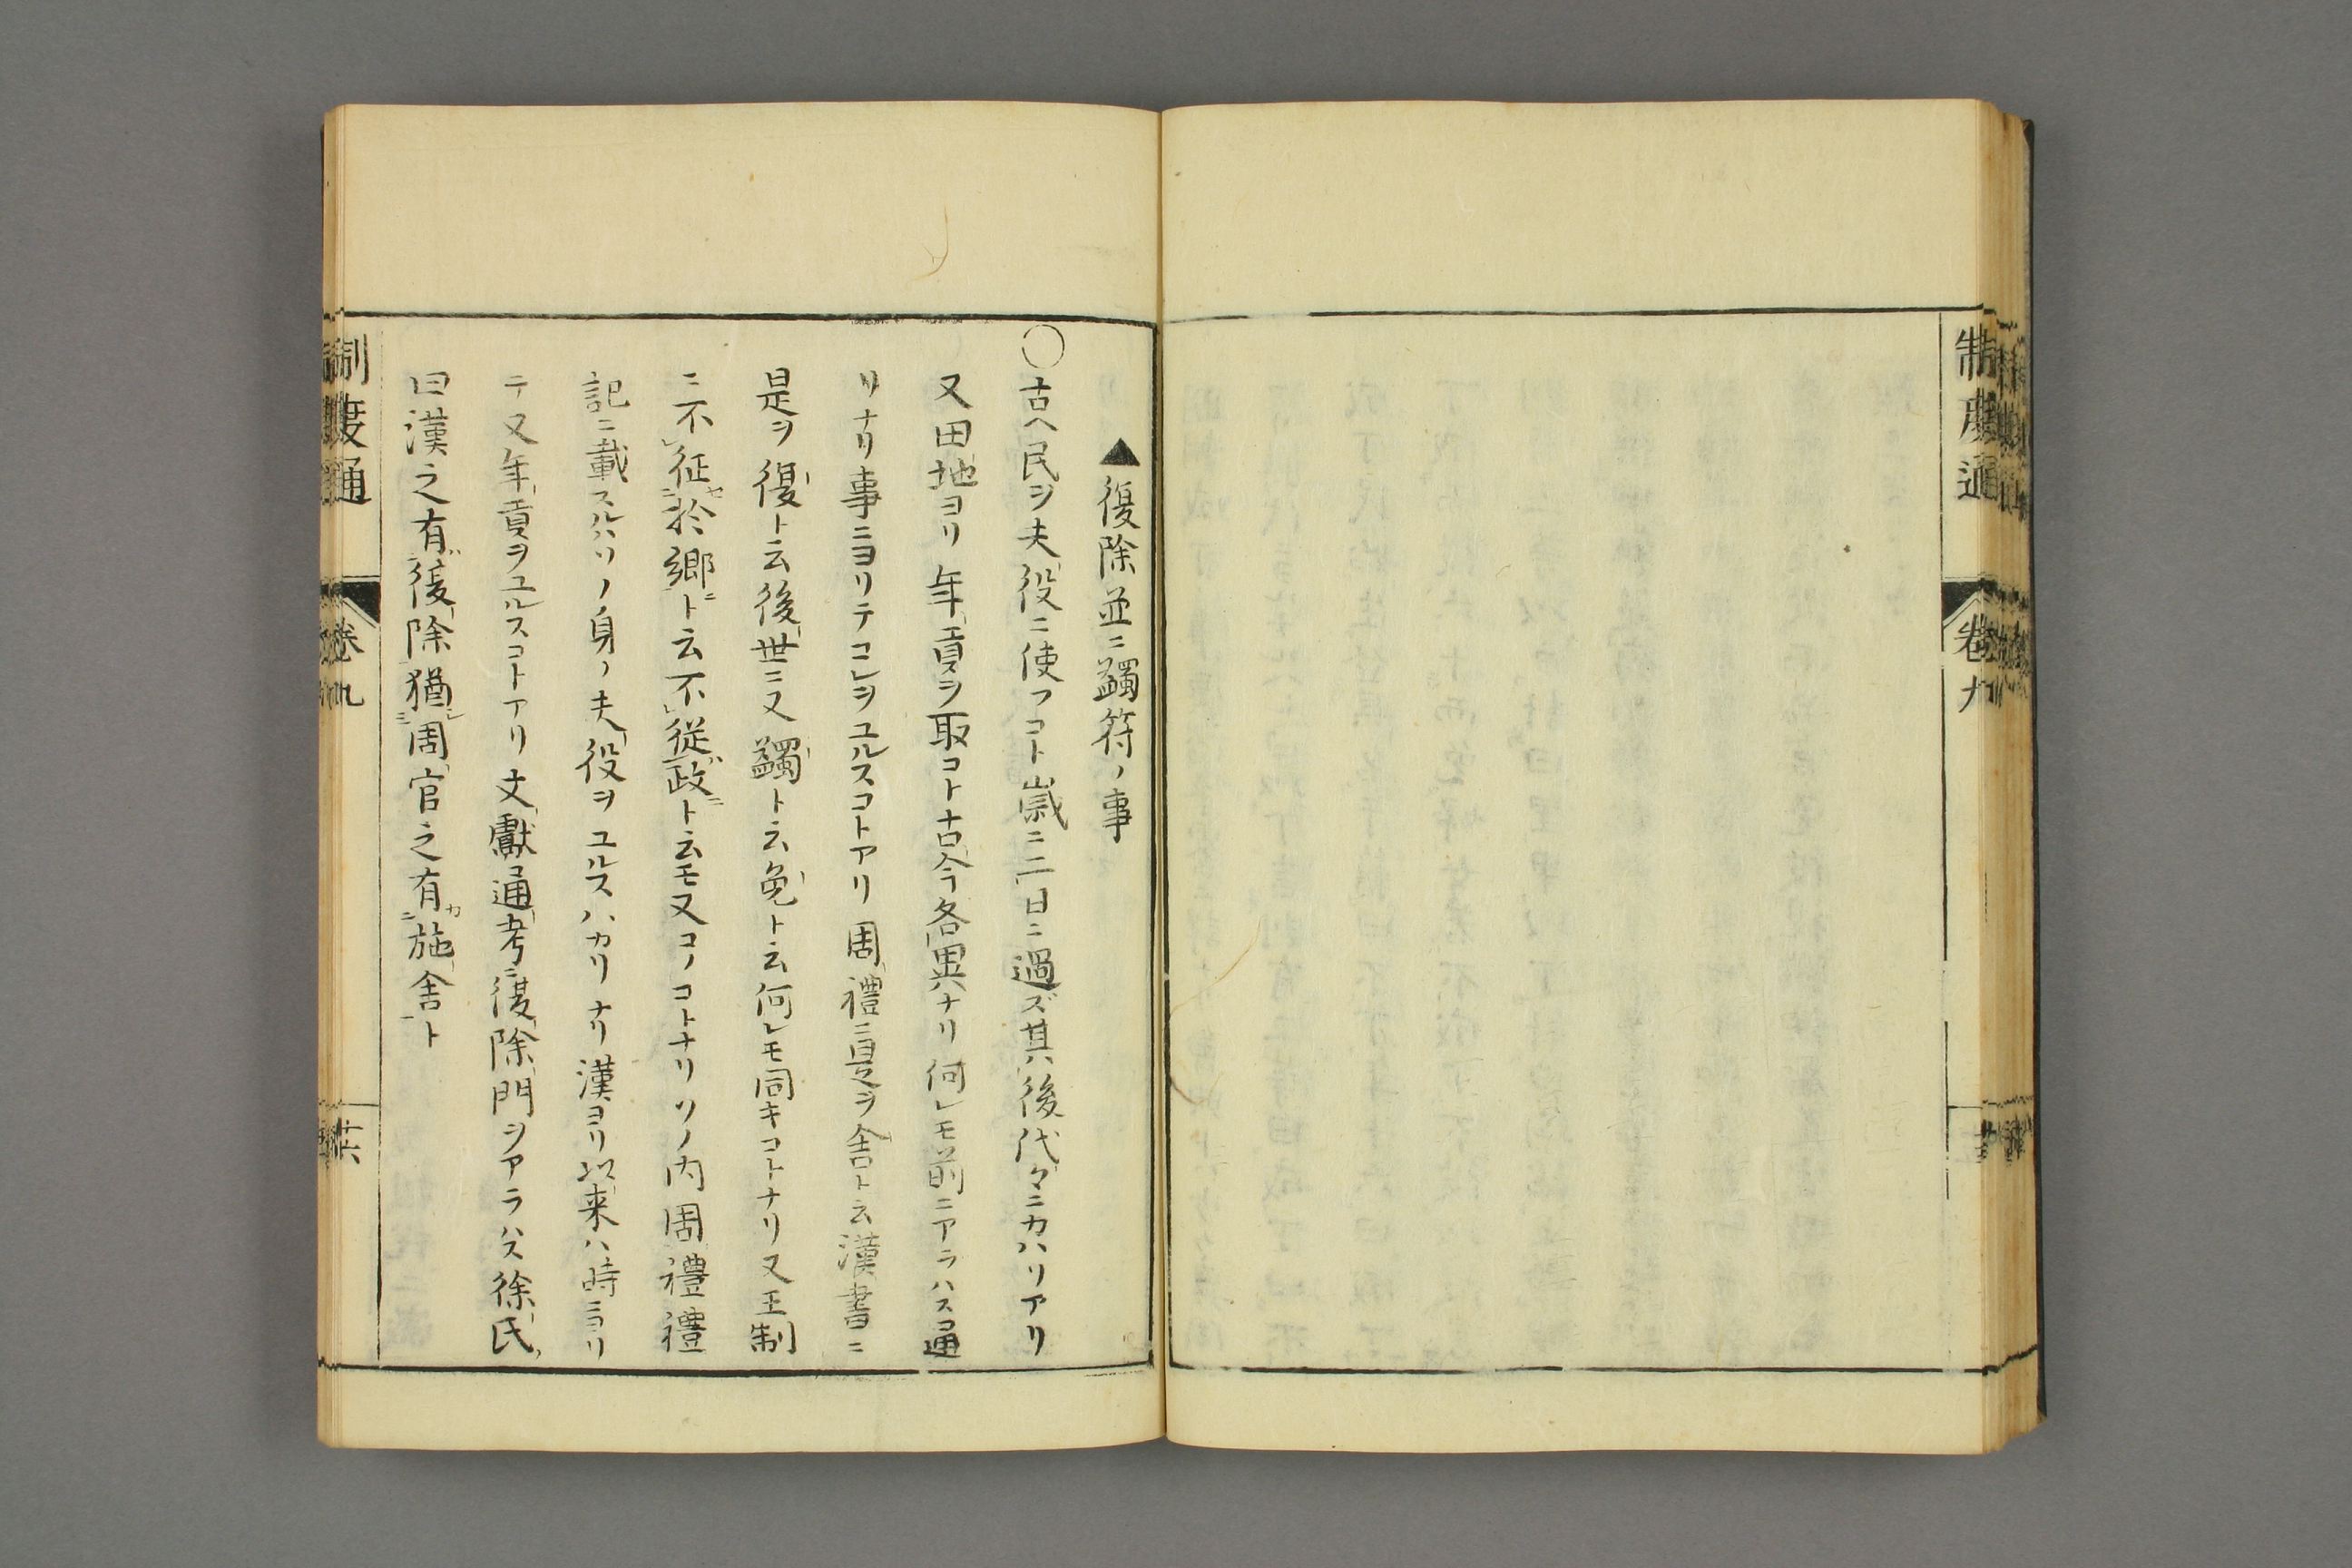 制度通
卷九
▲復除並ニ蠲符ノ事
〇古ヘ民ヲ夫役ニ使フコト歳ニ三日ニ過ズ其後代々ニカハリアリ
又田地ヨリ年貢ヲ取コト古今各異ナリ何レモ前ニアラハス通
リナリ事ニヨリテコレヲユルスコトアリ周禮ニ是ヲ舎ト云漢書ニ
是ヲ復ト云後世ニ又蠲ト云免ト云何レモ同キコトナリ又王制
ニ不征於郷ト云不從政ト云モ又コノコトナリソノ内周禮禮
記ニ載スルハソノ身ノ夫役ヲユルスハカリナリ漢ヨリ以来ハ時ニヨリ
テ又年貢ヲユルスコトアリ文獻通考ニ復除門ヲアラハス徐氏
曰漢之有復除猶周官之有施舎ト
制度通
卷九
廿六